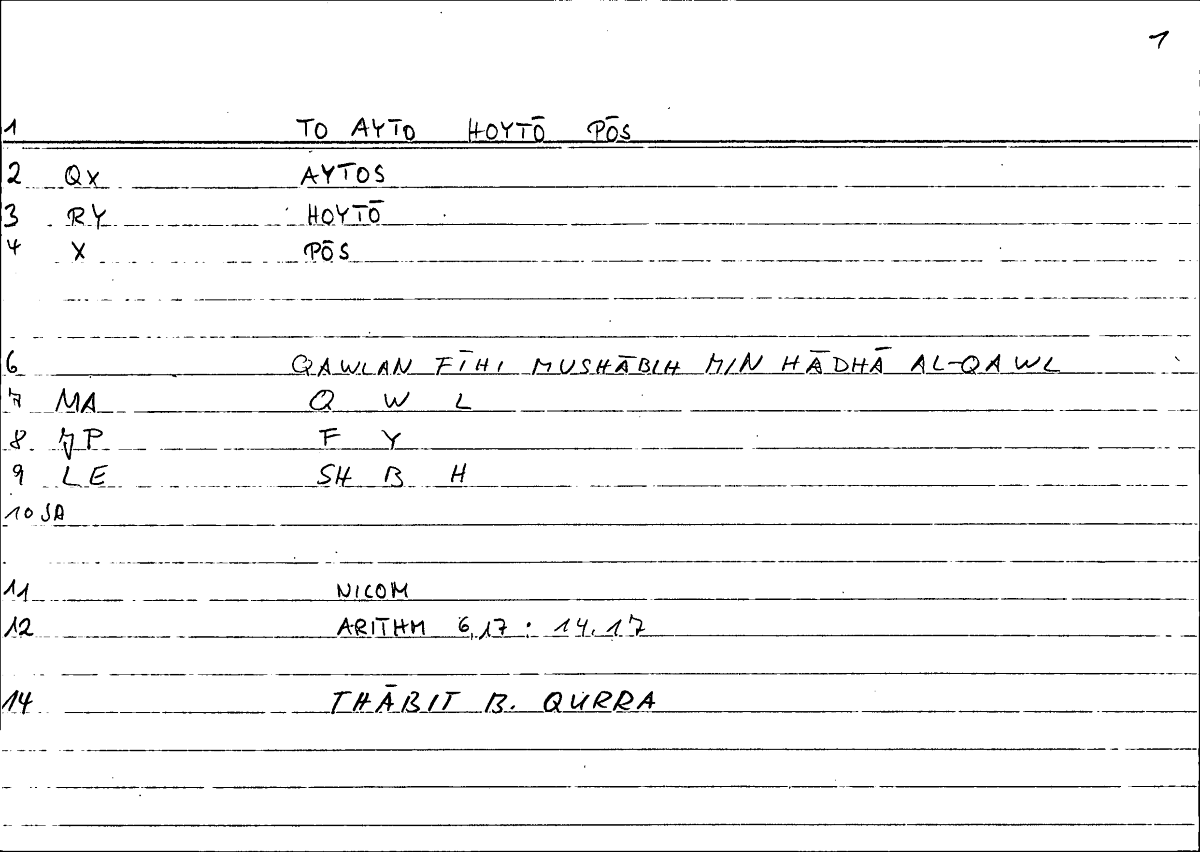 1
1 TO AYTO HOYTŌ PŌS
2 QX AYTOS
3 RY HOYTŌ
4 X PŌS
6 QAWLAN FĪHI MUSHĀBIH MIN HĀDHĀ AL-QAWL
7 MA Q W L
8 P F Y
9 LE SH B H
10 SA
11 NICOM
12 ARITHM 6,17 : 14.17
14 THĀBIT B. QURRA